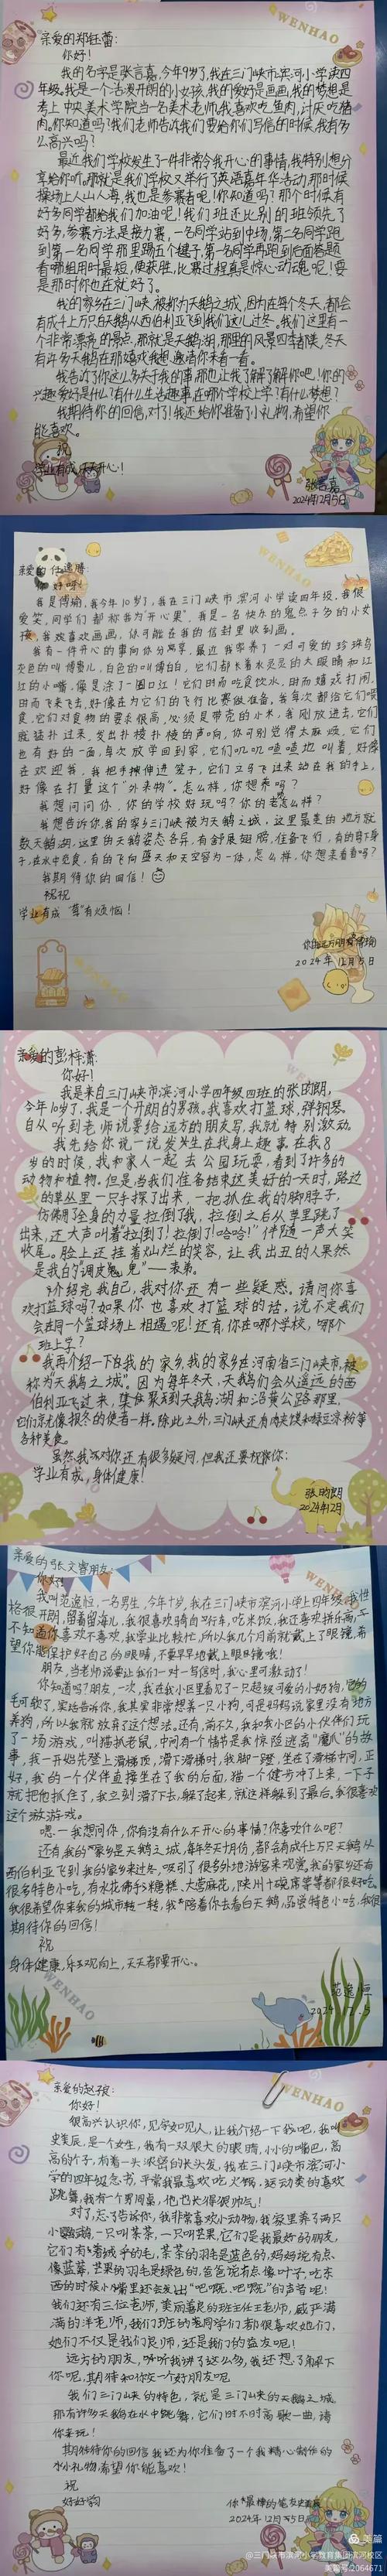 WENHAO
亲爱的郑钰蕾:
你好!
我的名字是张言嘉,今年9岁了,我在三门峡市滨河小学读四
年级。我是一个活泼开朗的小女孩,我的爱好是画画,我的梦想是
考上中央美术学院当一名美术老师,我喜欢吃鱼肉,讨厌吃猪
肉。你知道吗?我们老师告诉我们要给你们写信的时候,我有多
么高兴吗?
最近我们学校发生了一件非常令我开心的事情,我特别想分
享给你听。那就是我们学校又举行了英语嘉年华活动,那时候
操场上人山人海,我也是参赛者呢!你知道吗?那个时候有
好多同学都给我们加油吧!我们班还比别的班领先了
好多,参赛方法是接力赛,一名同学站到中场,第二名同学跑
到第一名同学那里踢五个毽子,第一名同学再跑到后面答题,
看哪组用时最短,便获胜,比赛过程真是惊心动魂呢!要
是那时你也在就好了。
我的家乡在三门峡,被称为天鹅之城,因为在每个冬天,都会
有成千上万只的天鹅从西伯利亚飞到我们这儿过冬。我们这里有
一个非常漂亮的景点,那就是天鹅湖,那里的风景四季都美,冬天
有许多天鹅在那嬉戏,我想邀请你来看一看。
我告诉了你这么多关于我的事,那也让我了解了解你吧!你的
兴趣爱好是什么?有什么生活趣事?在哪个学校上学?有什么梦想?
我期待你的回信,对了!我还给你准备了小礼物,希望你
能喜欢。
祝
学业有成,天天开心!
张言嘉
2024年12月5日
WENHAO
亲爱的任逸腾:
你好呀!
我是傅瑜,我今年10岁了,我在三门峡市滨河小学读四年级,我很
爱笑,同学们都称我为"开心果"。我是一名快乐的鬼点子多的小女
孩。我喜欢画画,你可能在我的信封里收到画。
我有一件开心的事向你分享,最近我家养了一对可爱的珍珠鸟
灰色的叫博蛰儿,白色的叫博白白,它们都长着水灵灵的大眼睛和红
红的小嘴,像是涂了一圈口红!它们时而吃食饮水,时而嬉戏打闹,
时而飞来飞去,好像在为它们的飞行比赛做准备。我每次都给它们喂
食,它们对食物的要求很高,必须是带壳的小米,我刚放进去,它们
就猛扑过来,发出扑棱扑棱的声响,你可别觉得太麻烦,它们
也有好的一面,每次放学回到家,它们叽叽喳喳地叫着,好像
在欢迎我,我把手掌伸进笼子,它们立马飞过来站在我的手上,
好像在打量这个"外来物"。怎么样,你想养吗?
我想问问你,你的学校好玩吗?你的老师怎么样?
我想告诉你,我的家乡三门峡被为天鹅之城,这里最美的地方就
数天鹅湖,这里的天鹅姿态各异,有舒展翅膀,准备飞行,有的留下身
子,在水中觅食,有的飞向蓝天和天空容为一体,怎么样,你想来看看吗?
我期待你的回信!
祝祝
学业有成 "莓"有烦恼!
傅瑜
2024年12月5日
WENHAO
亲爱的彭梓潇:
你好!
我是来自三门峡市滨河小学四年级四班的张昀朗,
今年10岁了,我是一个开朗的男孩。我喜欢打篮球,弹钢琴。
自从听到老师说要给远方的朋友写,我就特别激动。
我先给你说一说发生在我身上趣事,在我8
岁的时候,我和家人一起去公园玩耍,看到了许多的
动物和植物。但是当我们准备结束这美好的一天时,路边
的草丛里一只手探了出来,一把抓住我的脚脖子,
仿佛用了全身的力量拉倒了我,拉倒之后从草里跳了
出来,还大声叫着"拉倒了!拉倒了!哈哈!"伴随一声大笑
收尾。脸上还挂着灿烂的笑容,让我出丑的人果然
是我的"调皮鬼"——表弟。
介绍完我自己,我对你还有一些疑惑。请问你喜
欢打篮球吗?如果你也喜欢打篮球的话,说不定我们
会在同一个篮球场上相遇呢!还有,你在哪个学校,哪个
班上学?
我再介绍一下我的家乡,我的家乡在河南省三门峡市,被
称为"天鹅之城"。因为每年冬天,天鹅们会从遥远的西
伯利亚飞过来,集聚到天鹅湖和沿黄公路那里,
它们洁无像报冬的使者一样。除此之外,三门峡还有肉夹馍和绿豆凉粉等
各种美食。
虽然我对你还有很多疑问,但我还要祝福你:
学业有成,身体健康!
张昀朗
2024年12月
WENHAO
亲爱的张文睿朋友:
你好!
我叫范逸恒,一名男生,今年十岁,我在三门峡市滨河小学上四年级,我性
格很开朗,留着留海儿,我很喜欢骑自行车,吃米饭,我还喜欢拼乐高,
不知道你喜欢不喜欢,因学业比较忙,所以我几个月前就戴上了眼镜,希
望你能保护好自己的眼睛,不要早早地戴上眼镜哦!
朋友,当老师说要让我们一对一写信时,我心里可激动了!
你知道吗?朋友,一次,我在我小区里看见了一只超级可爱的小奶狗,它的
毛可软了,实话告诉你,我其实非常想养一只小狗,可是妈妈说家里没有地方
养狗,所以我就放弃了这个想法。还有,前不久,我和我小区的小伙伴们玩
了一场游戏,叫猫抓老鼠,中间有一个情节是我惊险逃离"魔爪"的故
事,我一开始先登上滑梯顶,滑下滑梯时,我脚一蹬,坐在了滑梯中间,正
好,我的一个伙伴直接坐在了我的后面,猫一个健步冲了上来,一下子
就把他抓住了,我立刻滑了下去,躲了起来,就这样躲到了最后,我很喜欢
这个游戏。
嗯,一我想问你,你有没有什么不开心的事情?你喜欢什么呢?
还有我的家乡是天鹅之城,每年冬天十月份,都会有成千上万只天鹅从
西伯利亚飞到我的家乡来过冬,吸引了很多外地游客来观赏,我的家乡还有
很多特色小吃,有水花佛手、糖糕、大营麻花,陕州十碗席等等都很好吃,
我很希望你来我的城市转一转,我陪着你去看白天鹅,品尝特色小吃,我很
期待你的回信!
祝
身体健康,乐观向上,天天都要开心。
WENHAO
范逸恒
2024.12.5
WENHAO
亲爱的赵孩:
你好!
很高兴认识你,见字如见人,让我介绍一下我吧,我叫
史美辰,是一个女生,我有一双很大的眼睛,小小的嘴巴,高
高的个子,有着一头浓密的长头发,我在三门峡市滨河小
学的四年级念书,平常我最喜欢吃火锅,运动类的喜欢
跳舞,我有一个男同桌,他也长得很帅气!
对了,忘了告诉你,我非常喜欢小动物,我家里养了两只
小鹦鹉,一只叫茶茶,一只叫芒果,它们是我最好的朋友,
它们有着绒乎的毛,茶茶的羽毛是蓝色的,妈妈说有点
像蓝莓,芒果的羽毛是绿色的,爸爸说有点像叶子,吃东
西的时候小嘴里还会发出"吧唧,吧唧"的声音呢!
我们还有三位老师,美丽善良的班主任王老师,威严满
满的洋老师,我们班的同学们都很喜欢她们,
她们不仅是我们良师,还是我们的益友呢!
远方的朋友,听听我讲了这么多,我还想了解下
你呢,期待和你交一个好朋友呢
我们三门峡的特色,就是三门峡的天鹅之城
那有许多天鹅在水中跳舞,它们时不时高歌一曲,请
你来玩!
期待待你的回信,我还为你准备了一个我精心制作的
小礼物,希望你能喜欢!
祝
好好的
你最棒的笔友史美辰
2024年12月5日
美篇
@三门峡市滨河小学教育集团滨河校区
美篇号:2064671